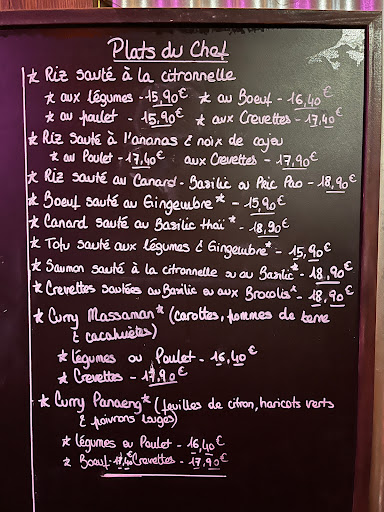 Plats du Chef
* Riz sauté à la citronnelle
* aux légumes - 15,90€ * au Boeuf - 16,40€
* au poulet - 15,90€ * aux Crevettes - 17,40€
* Riz Sauté à l'ananas & noix de cajou
* au Poulet - 17,40€ aux Crevettes - 17,90€
* Riz sauté au Canard - Basilic ou Pric Pao - 18,90€
* Boeuf sauté au Gingembre* - 15,90€
* Canard sauté au Basilic thaï* - 18,90€
* Tofu sauté aux légumes & Gingembre* - 15,90€
* Saumon sauté à la citronnelle ou au Basilic* - 18,90€
* Crevettes sautées au Basilic ou aux Brocolis* - 18,90€
* Curry Massaman* (carottes, pommes de terre
& cacahuètes)
* légumes ou Poulet - 16,40€
* Crevettes - 17,90€
* Curry Panaeng* (feuilles de citron, haricots verts
& poivrons rouges)
* légumes ou Poulet - 16,40€
* Boeuf - 17,40€ Crevettes - 17,90€